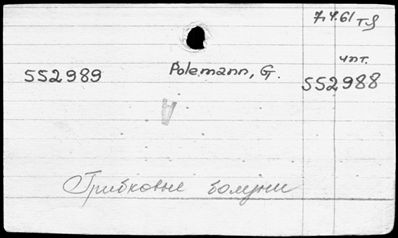 7.4.61 Тя
чпт.
552989 Polemann, G. 552988
Грибковые болезни